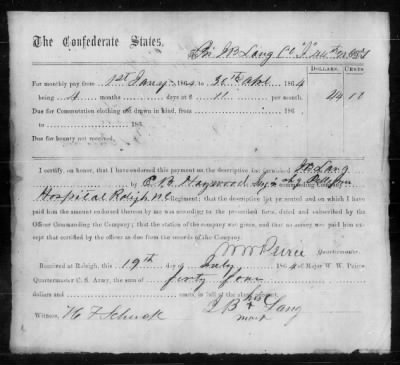 The Confederate States,
Pri J B Lang Co "I"
DOLLARS. CENTS
For monthly pay from 1st Jany 1864 to 30th Apl 1864
being 4 months days at $ 11 per month. 44
Due for Commutation clothing not drawn in kind, from 186
to 186
Due for bounty not received.
I certify, on honor, that I have endorsed the payment on the descriptive list furnished J B Lang
by E. B. Haywood commanding Company
Hospital Raleigh N.C. Regiment; that the descriptive list presented and on which I have
paid him the amount endorsed thereon by me was according to the prescribed form, dated and subscribed by the
Officer Commanding the Company; that the station of the company was given, and that no army was assigned paid him
except that certified by the officer as due from the records of the Company.
W W Peirce Quartermaster.
Received at Raleigh, this 19th day of July 1864 of Major W. W. Peirce
Quartermaster C. S. Army, the sum of forty four
dollars and cents, in full of the above
his
J B X Lang
mark
Witness,